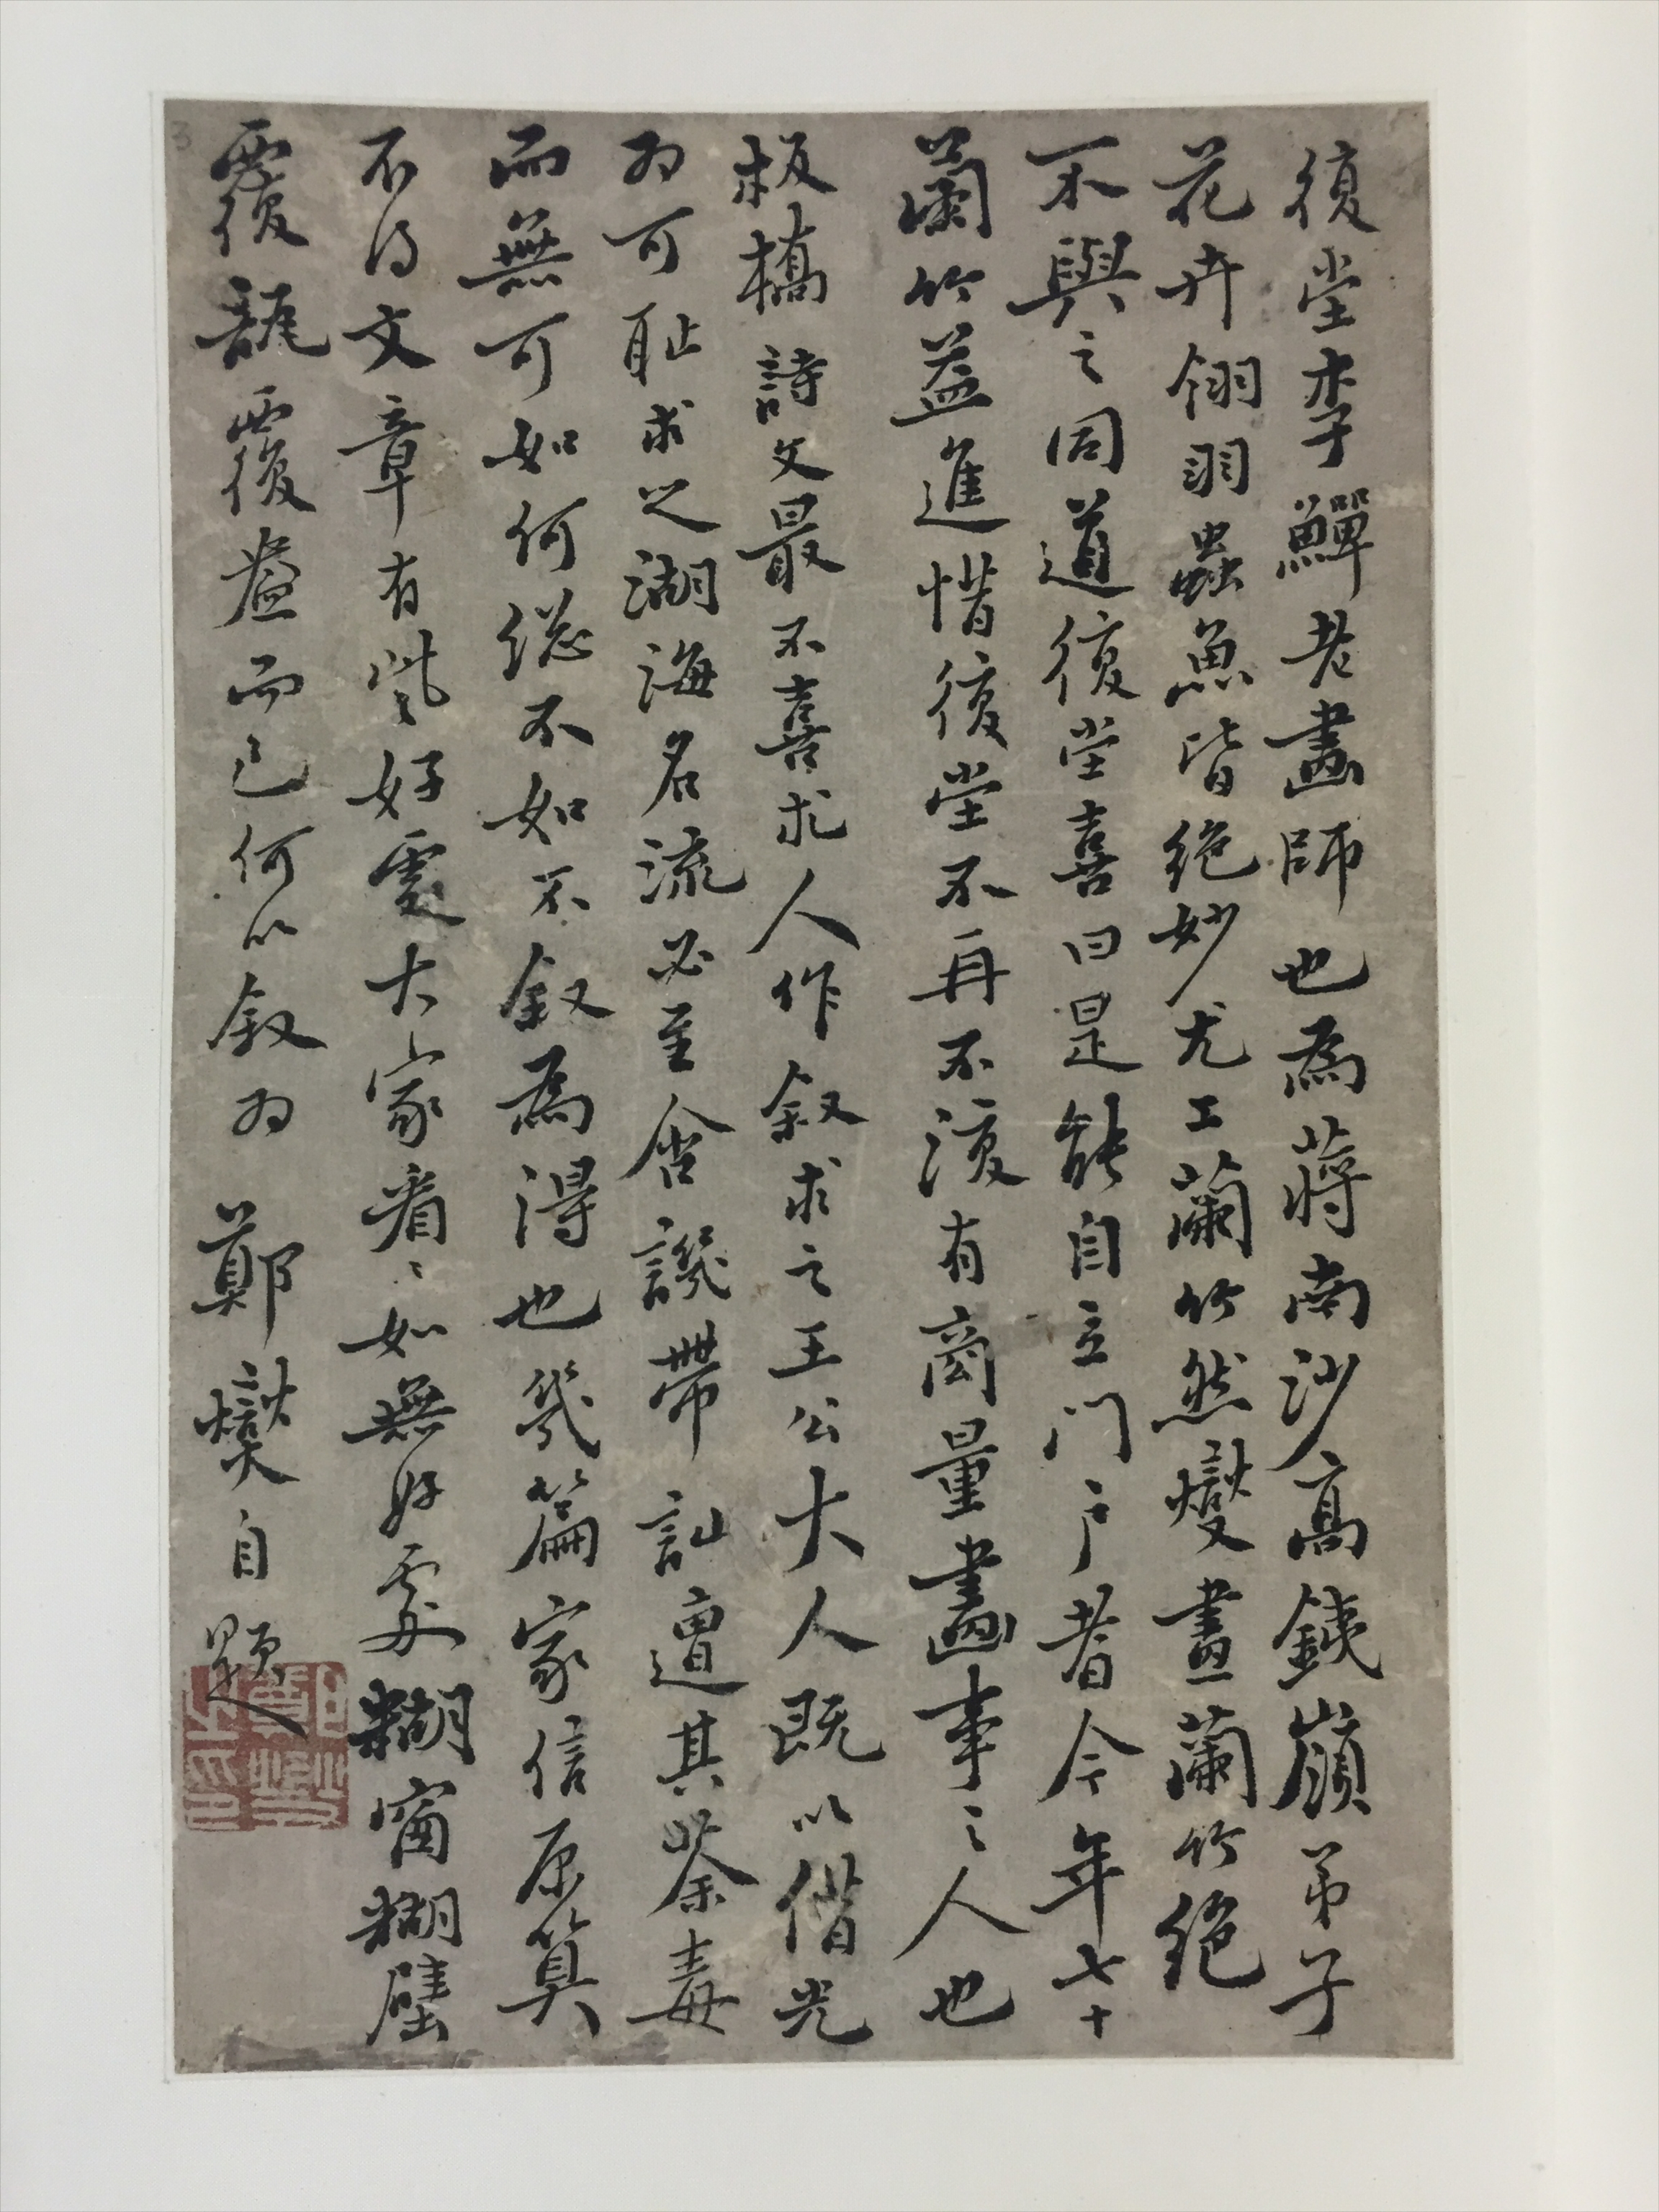 復堂李鱓老畫師也為蔣南沙高鐵嶺弟子
花卉翎羽蟲魚皆絕妙尤工蘭竹然燮畫蘭竹絕
不與之同道復堂喜曰是能自立門戶者今年七十
蘭竹益進惜復堂不再不復有商量畫事之人也
板橋詩文最不喜求人作叙求之王公大人既以借光
為可恥求之湖海名流必至含譏帶訕遭其荼毒
而無可如何總不如不叙為得也幾篇家信原算
不得文章有些好處大家看看如無好處糊窗糊壁
覆瓿覆盎而已何以叙為 鄭燮自題